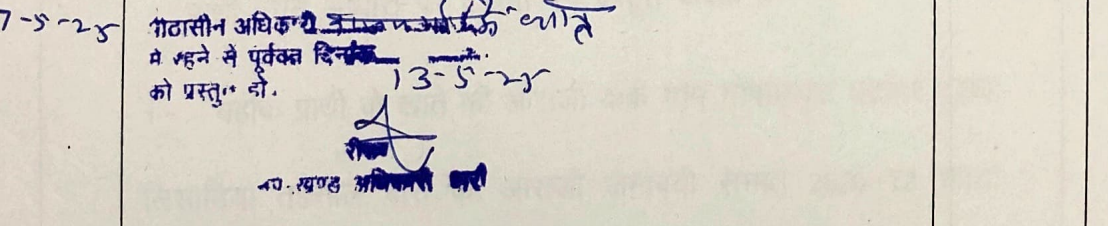 7-5-25 पीठासीन अधिकारी
मे रहने से पूर्ववत दिनांक
13-5-25
को प्रस्तुत हो.
रीडर
उप. खण्ड अधिकारी बारी